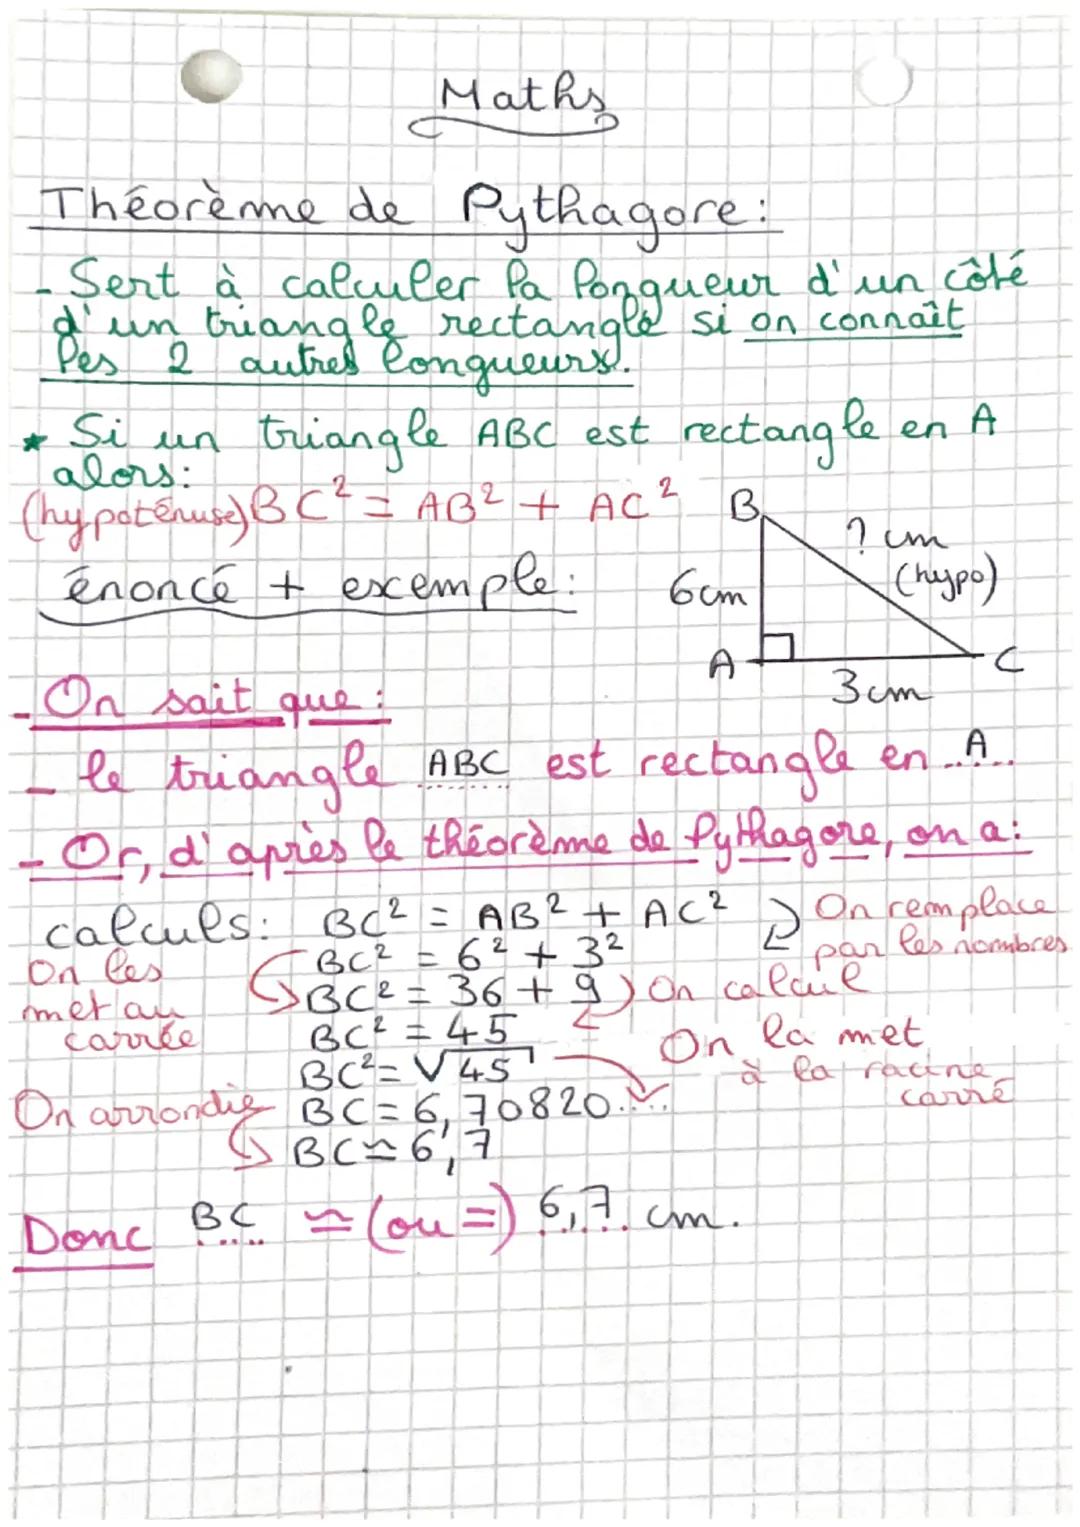 Maths
Théorème de Pythagore :
- Sert à calculer la longueur d'un côté
d'un triangle rectangle si on connaît
les 2 autres longueurs.
★ Si un triangle ABC est rectangle en A
alors :
(hypoténuse) BC² = AB² + AC²
B
? cm
(hypo)
énoncé + exemple :
6cm
A
C
3cm
- On sait que :
- le triangle ABC est rectangle en ..A..
- Or, d'après le théorème de Pythagore, on a :
calculs : BC² = AB² + AC² On remplace
par les nombres
On les
met au
carrée
BC² = 6² + 3²
BC² = 36 + 9 On calcul
BC² = 45
On la met
à la racine
carré
BC² = √45
On arrondie BC = 6,70820.....
BC ≃ 6,7
Donc BC ≃ (ou =) 6,7 cm.